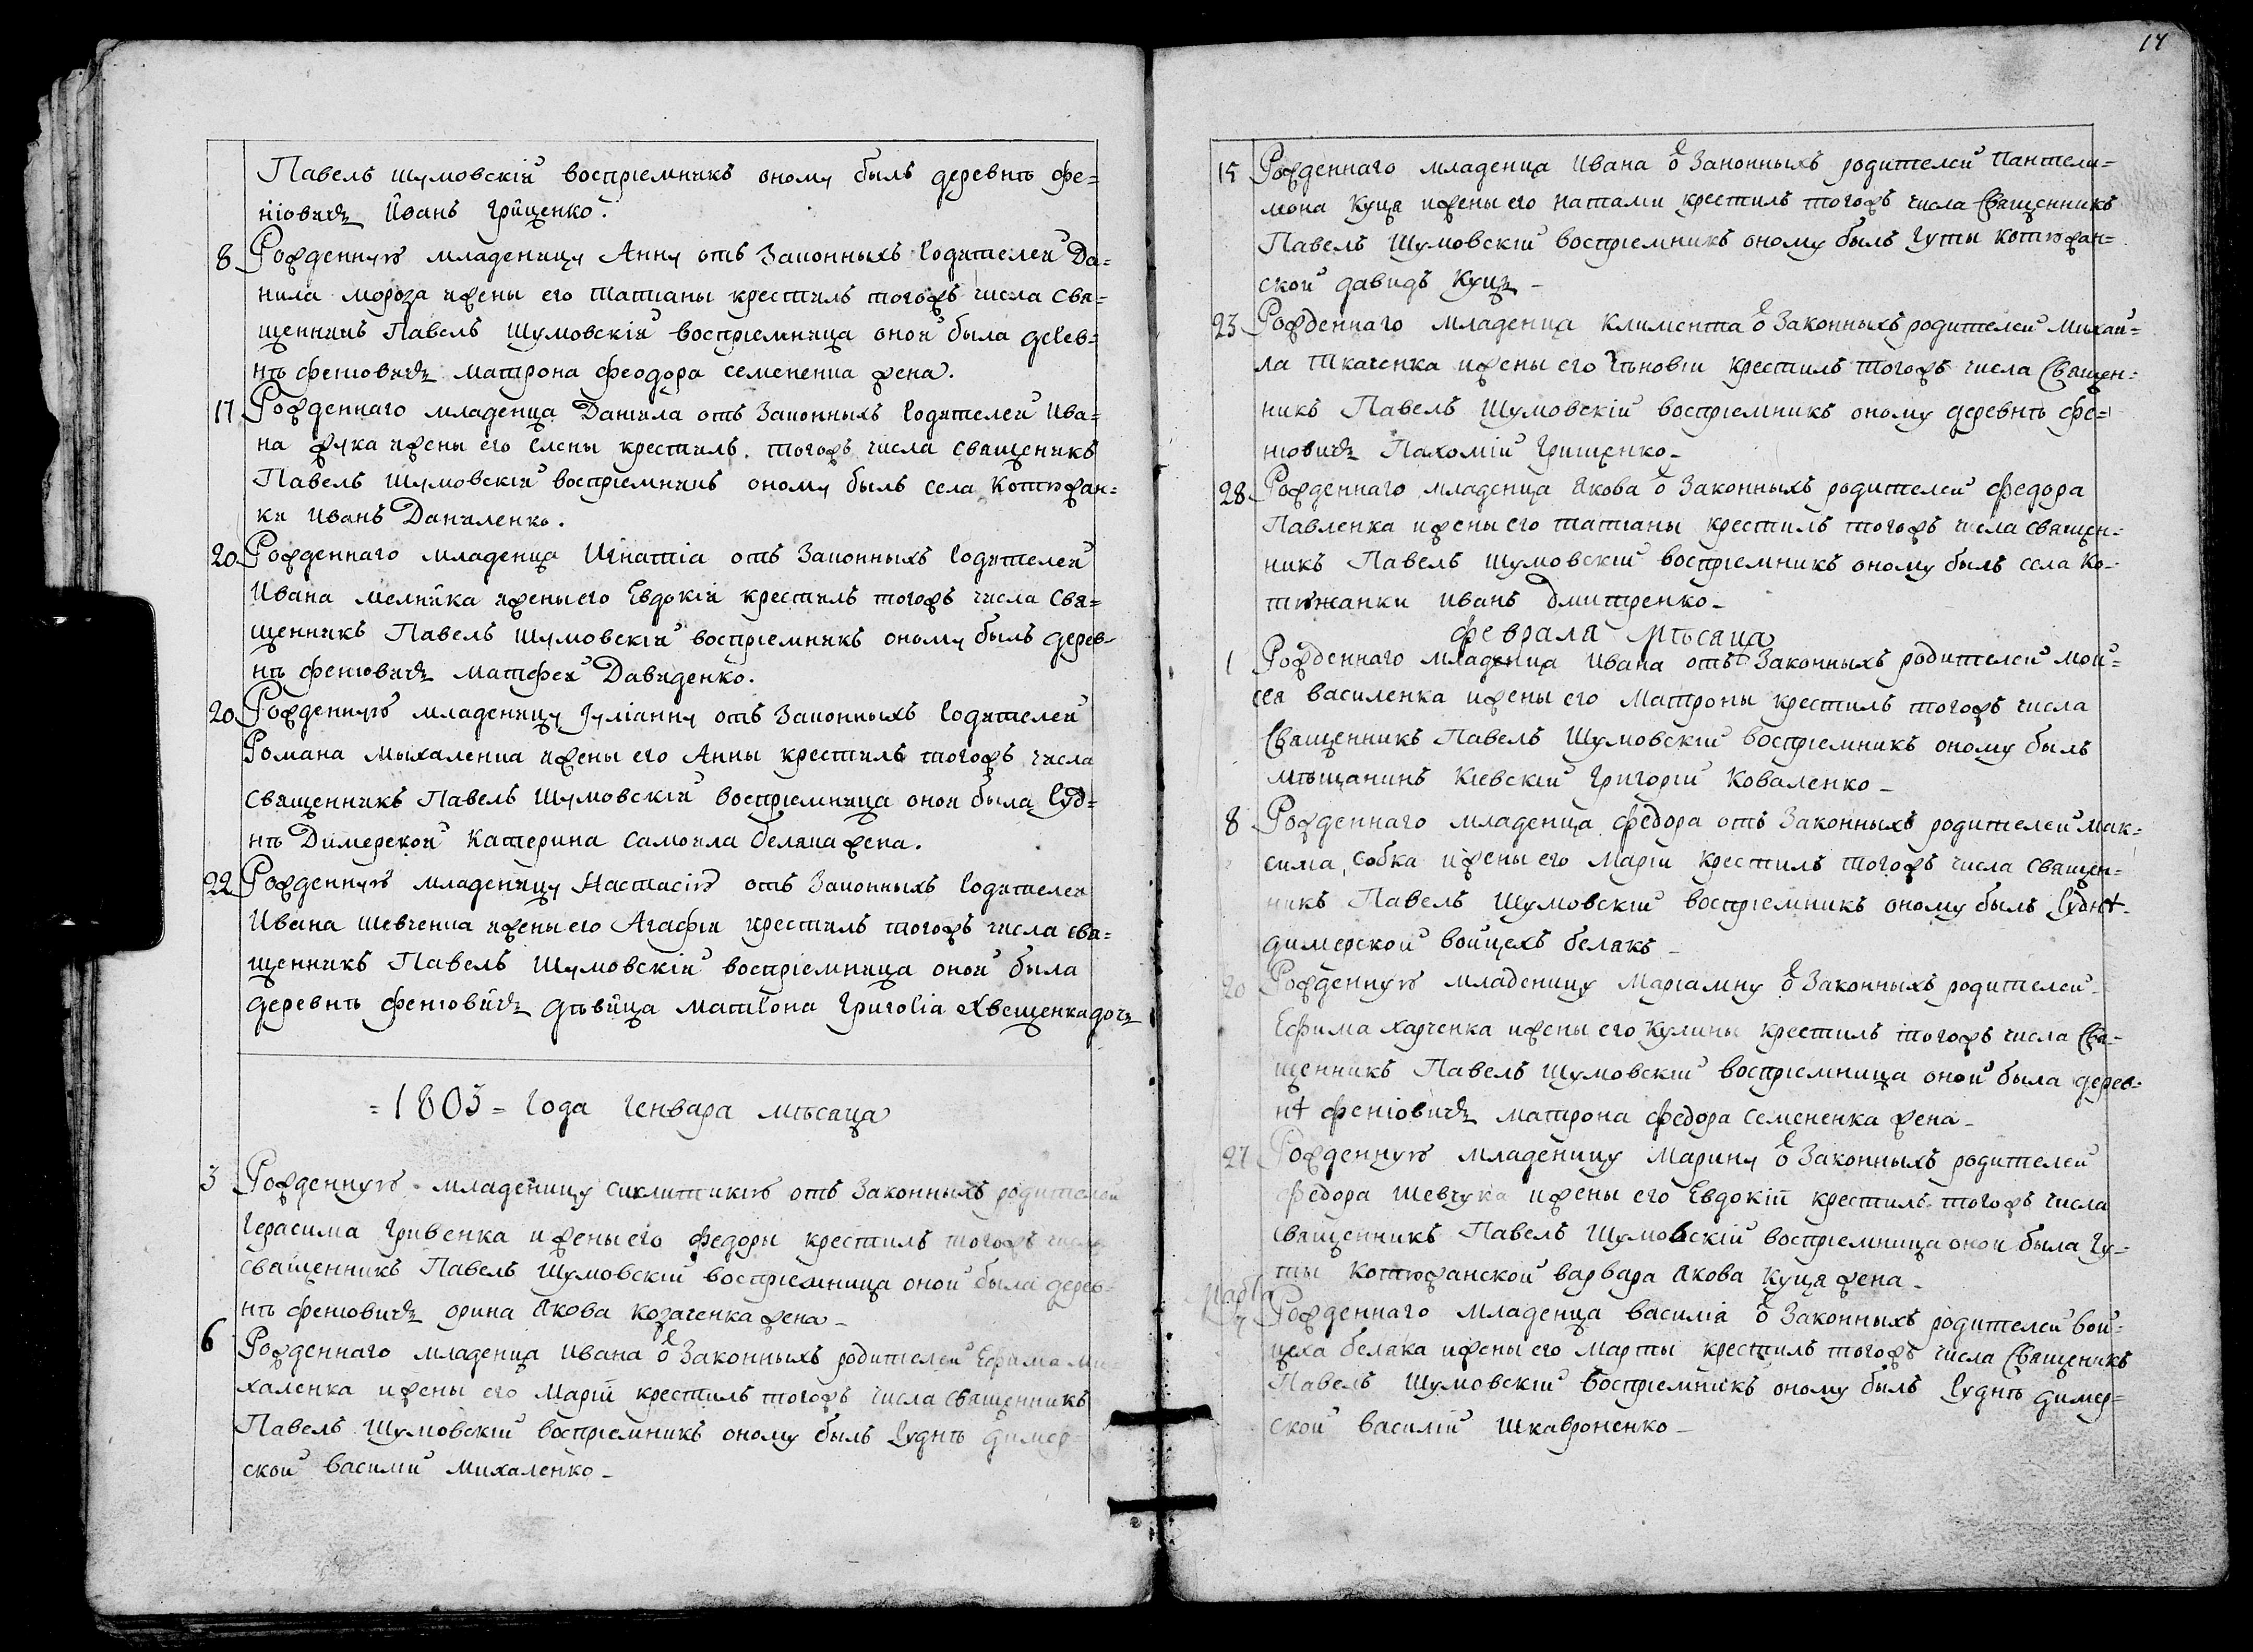 Павелъ шумовскій воспріемникъ оному былъ деревнѣ фе=
ніовичъ Иванъ Грищенко.
8 Рожденную младеницу Анну отъ Законныхъ Родителей Да=
нила мороза ижены его Татианы крестилъ тогожъ числа свя=
щенникъ Павелъ Шумовскій воспріемница оной была дерев=
нѣ феніовичъ матрона феодора семененка жена.
17 Рожденнаго младенца Даніила отъ Законныхъ Родителей Ива=
на жука ижены его Елены крестилъ. тогожъ числа священикъ
Павелъ Шумовскій воспріемникъ оному былъ села Котюжан=
ки Иванъ Даниленко.
20 Рожденнаго младенца Игнатіа отъ Законныхъ Родителей
Ивана мелника иженыего Евдокіи крестилъ тогожъ числа свя=
щенникъ Павелъ Шумовскій воспріемникъ оному былъ дерев-
нѣ феніовичъ матфей Давиденко.
20 Рожденную младеницу Іуліанну отъ Законныхъ Родителей
Романа мыхаленка ижены его Анны крестилъ тогожъ числа
священникъ Павелъ Шумовскій воспріемница оной была Руд=
нѣ Димерской Катерина самоила беляка жена.
22 Рожденную младеницу Настасію отъ Законныхъ Родителей
Ивана шевченка иженыего Агафіи крестилъ тогожъ числа свя=
щенникъ Павелъ Шумовскій воспріемница оной была
деревнѣ феніовичъ дѣвица матрона Григоріа Хвещенка дочь
=1803= Года Генвара мѣсаца
3 Рожденную младеницу сиклитикію отъ Законныхъ родителей
Герасима Гривенка иженыего федоры крестилъ тогожъ числа
священникъ Павелъ Шумовскій воспріемница оной была дерев-
нѣ феніовичъ орина Якова козаченка жена-
6 Рожденнаго младенца Ивана ѿ Законныхъ родителей Ефима ми=
халенка ижены его Маріи крестилъ тогожъ числа священникъ
Павелъ Шумовскій воспріемникъ оному былъ Руднѣ димер=
ской Василій Михаленко-
14
15 Рожденнаго младенца Ивана ѿ Законныхъ родителей Пантели=
мона Куца ижены его наталіи крестилъ тогожъ числа Священникъ
Павелъ Шумовскій воспріемникъ оному былъ Гуты котюжан=
ской давидъ Куцъ-
23 Рожденнаго младенца климента ѿ Законныхъ родителей михай=
ла ткаченка ижены его крестилъ тогожъ числа Священ=
никъ Павелъ Шумовскій воспріемникъ оному деревнѣ фе=
ніовичъ Пахомій Грищенко-
28 Рожденнаго младенца Якова ѿ Законныхъ родителей федора
Павленка ижены его татианы крестилъ тогожъ числа священ=
никъ Павелъ Шумовскій воспріемникъ оному былъ села Ко=
тюжанки Иванъ дмитренко-
февраля мѣсаца
1 Рожденнаго младенца Ивана отъ Законныхъ родителей мои=
сея василенка ижены его матроны крестилъ тогожъ числа
Священникъ Павелъ Шумовскій воспріемникъ оному былъ
мѣщанинъ Кіевскій Григорій Коваленко-
8 Рожденнаго младенца федора отъ Законныхъ родителей мак=
сима собка ижены его Маріи крестилъ тогожъ числа священ=
никъ Павелъ Шумовскій воспріемникъ оному былъ Руднѣ-
димерской войцехъ белякъ-
20 Рожденную младеницу Маріамну ѿ Законныхъ родителей-
Ефима харченка ижены его Кулины крестилъ тогожъ числа Свя=
щенникъ Павелъ Шумовскій воспріемница оной была дерев=
нѣ феніовичъ матрона федора семененка жена-
27 Рожденную младеницу Марину ѿ Законныхъ родителей
федора шевчука ижены его Евдокіи крестилъ тогожъ числа
священникъ Павелъ Шумовскій воспріемница оной была Гу=
ты котюжанской варвара Якова Куца жена-
Рожденнаго младенца василіа ѿ Законныхъ родителей вой=
цеха белака ижены его марты крестилъ тогожъ числа Священикъ
Павелъ Шумовскій воспріемникъ оному былъ Руднѣ димер=
ской василій Шкавроненко-